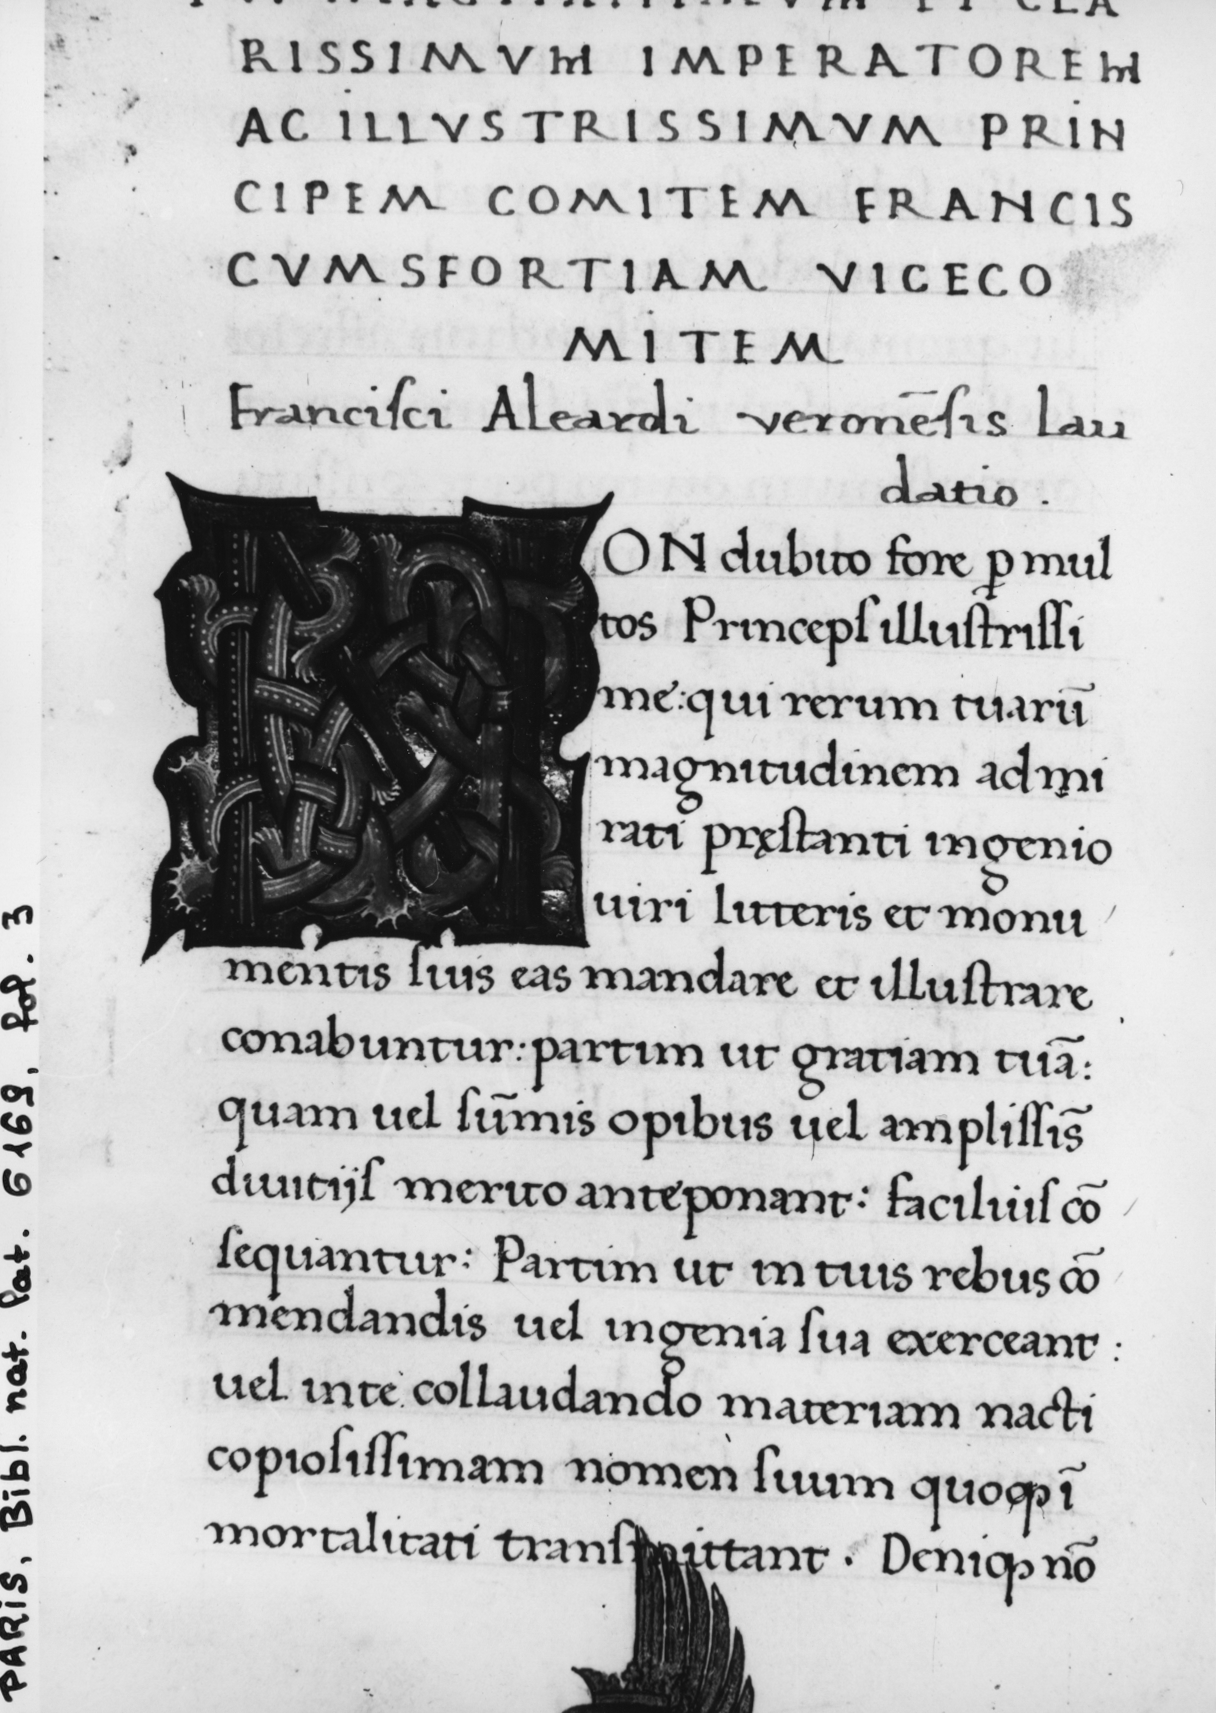 ET CLA
RISSIMVM IMPERATOREM
AC ILLVSTRISSIMVM PRIN
CIPEM COMITEM FRANCIS
CVM SFORTIAM VICECO
MITEM
Franciſci Aleardi veronēſis lau
datio .
NON dubito fore ꝑ mul
tos Princepſ illuſtriſſi
me: qui rerum tuarū
magnitudinem admi
rati pręſtanti ingenio
uiri litteris et monu
mentis ſuis eas mandare et illuſtrare
conabuntur: partim ut gratiam tuā:
quam uel ſūmis opibus uel ampliſſis̄
diuitijſ merito anteponant: faciliuſ cō
ſequantur: Partim ut in tuis rebus cō
mendandis uel ingenia ſua exerceant :
uel in te collaudando materiam nacti
copioſiſſimam nomen ſuum quoqꝫ ī
mortalitati tranſmittant . Deniqꝫ nō
PARIS, Bibl. nat. lat. 6169, fol. 3